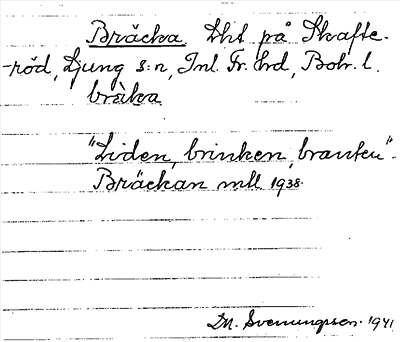 Bräcka. Lht på Skafte-
röd, Ljung s:n, Inl. Fr. hd, Boh. l.
bräka
"Liden, brinken, branten".
Bräckan mtl 1938.
D.M. Svenungsson. 1941